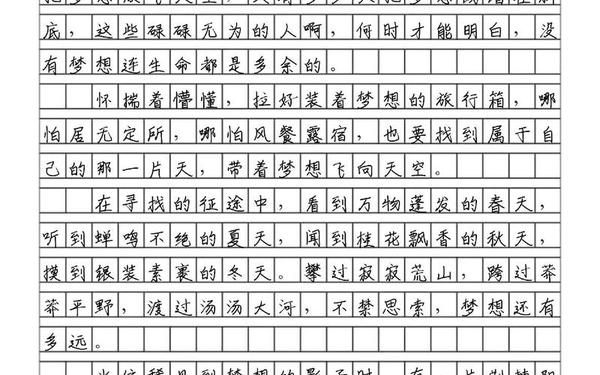 底，这些碌碌无为的人啊，何时才能明白，没
有梦想连生命都是多余的。
怀揣着懵懂，拉好装着梦想的旅行箱，哪
怕居无定所，哪怕风餐露宿，也要找到属于自
己的那一片天，带着梦想飞向天空。
在寻找的征途中，看到万物蓬发的春天，
听到蝉鸣不绝的夏天，闻到桂花飘香的秋天，
摸到银装素裹的冬天。攀过寂寂荒山，跨过莽
莽平野，渡过汤汤大河，不禁思索，梦想还有
多远。